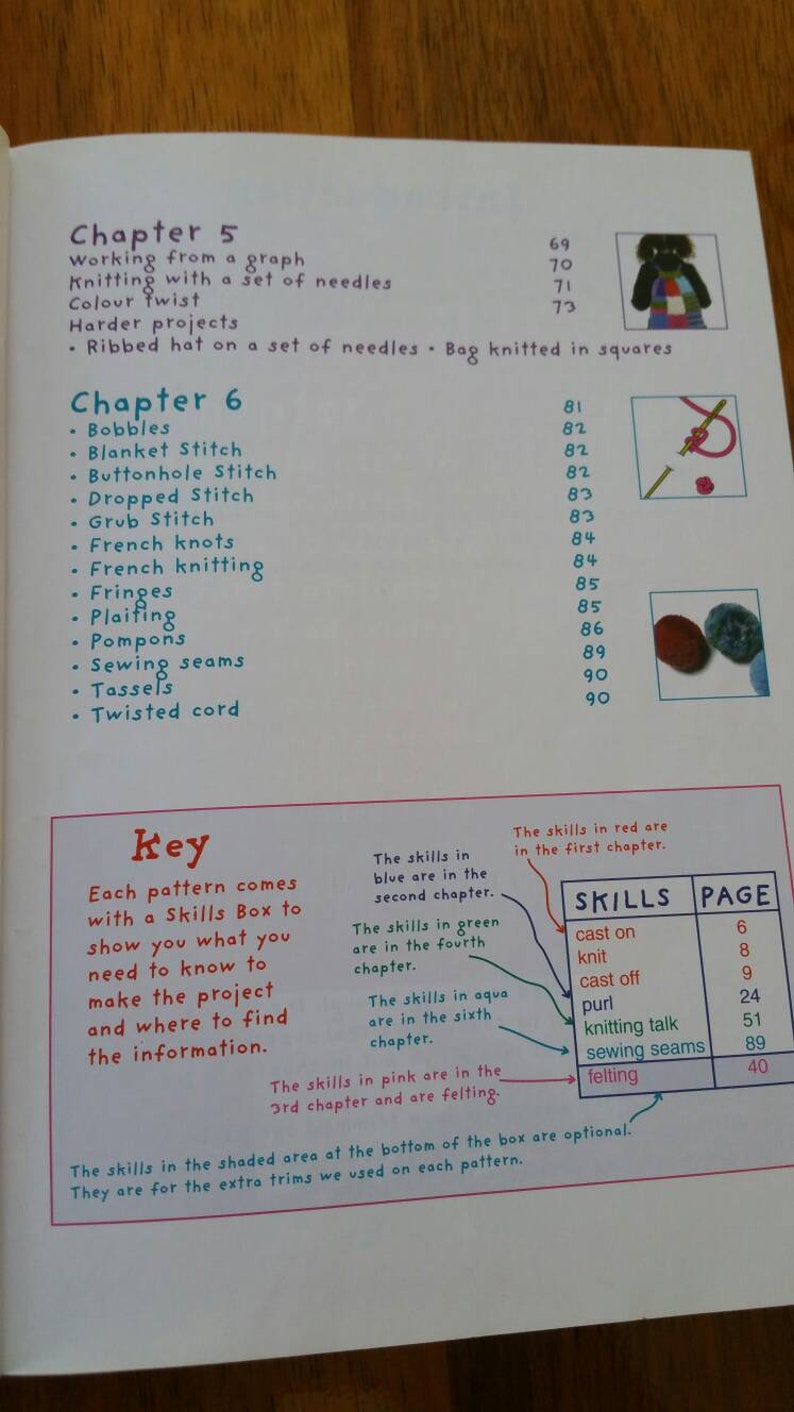 Chapter 5 69
Working from a graph 70
Knitting with a set of needles 71
Colour Twist 73
Harder projects
• Ribbed hat on a set of needles • Bag knitted in squares
Chapter 6 81
• Bobbles 82
• Blanket Stitch 82
• Buttonhole Stitch 82
• Dropped Stitch 83
• Grub Stitch 83
• French knots 84
• French knitting 84
• Fringes 85
• Plaiting 85
• Pompons 86
• Sewing seams 89
• Tassels 90
• Twisted cord 90
Key
Each pattern comes
with a Skills Box to
show you what you
need to know to
make the project
and where to find
the information.
The skills in
blue are in the
second chapter.
The skills in red are
in the first chapter.
The skills in green
are in the fourth
chapter.
The skills in aqua
are in the sixth
chapter.
The skills in pink are in the
3rd chapter and are felting.
SKILLS PAGE
cast on 6
knit 8
cast off 9
purl 24
knitting talk 51
sewing seams 89
felting 40
The skills in the shaded area at the bottom of the box are optional.
They are for the extra trims we used on each pattern.